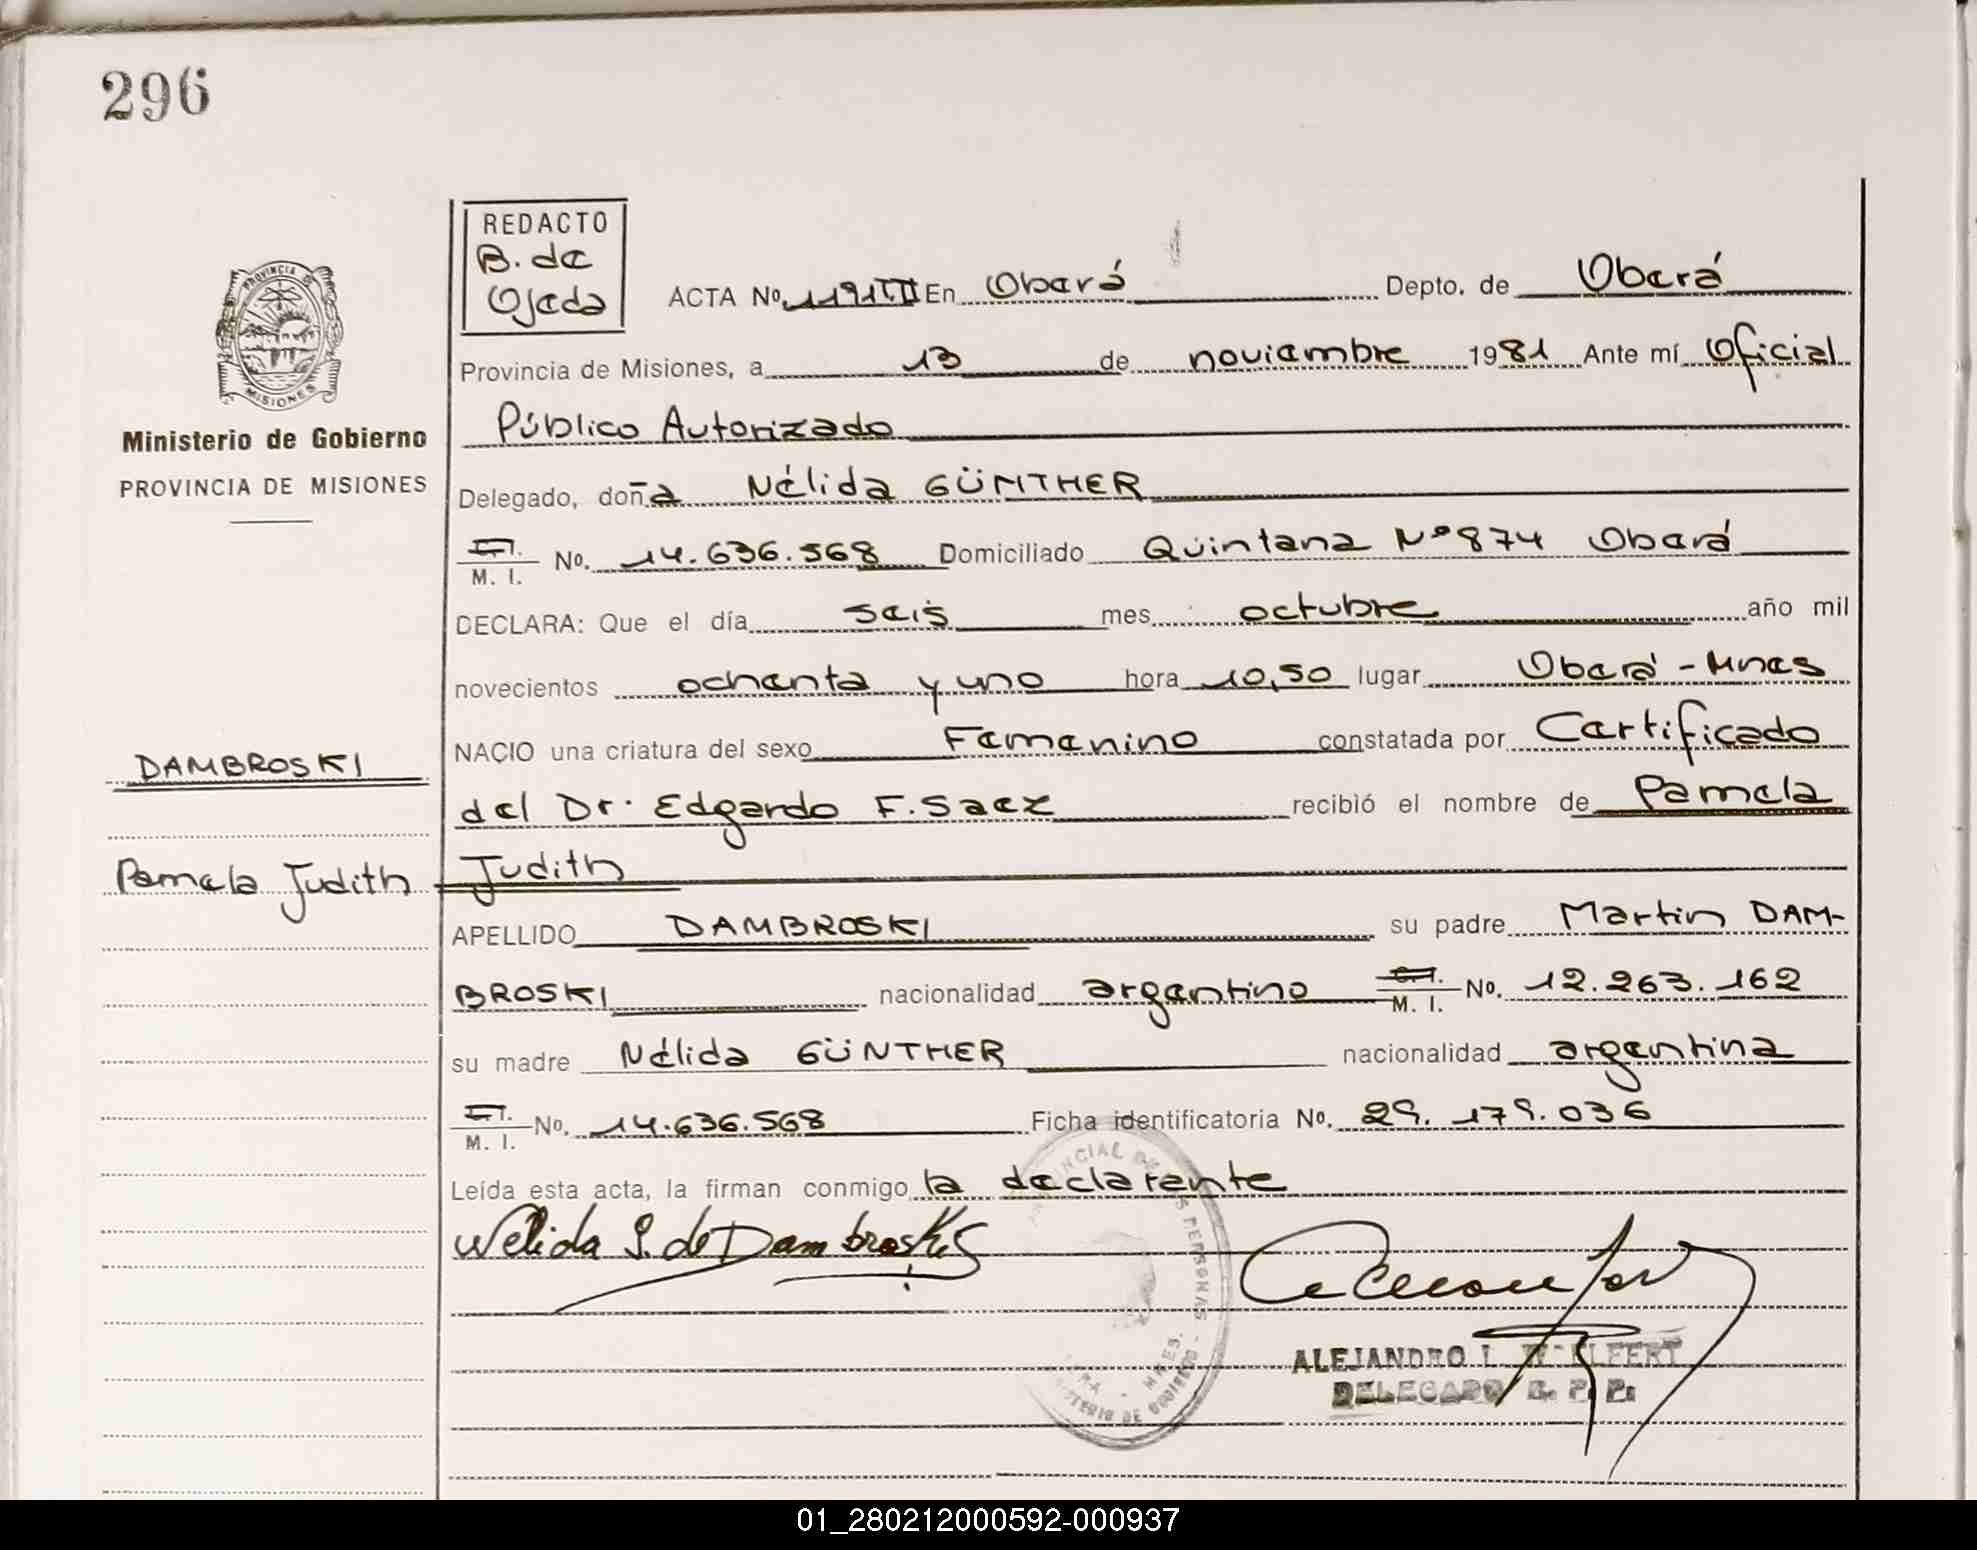 296
REDACTO
B. de
Ojeda
ACTA No. 1191III En Oberá Depto. de Oberá
Provincia de Misiones, a 13 de noviembre 1981 Ante mí Oficial
Público Autorizado
Ministerio de Gobierno
PROVINCIA DE MISIONES
Delegado, doña Nélida GÜNTHER
C.I.
M. I. No. 14.636.568 Domiciliado Quintana Nº 874 Oberá
DECLARA: Que el día seis mes octubre año mil
novecientos ochenta y uno hora 10,50 lugar Oberá - Mnes
NACIO una criatura del sexo Femenino constatada por Certificado
DAMBROSKI
del Dr. Edgardo F. Saez recibió el nombre de Pamela
Pamela Judith Judith
APELLIDO DAMBROSKI su padre Martin DAM-
BROSKI nacionalidad argentino C.I. M. I. No. 12.263.162
su madre Nélida GÜNTHER nacionalidad argentina
C.I. M. I. No. 14.636.568 Ficha identificatoria No. 29.179.036
Leída esta acta, la firman conmigo la declarente
Nelida G. de Dambroski
ALEJANDRO L.
DELEGADO R. P. P.
01_280212000592-000937